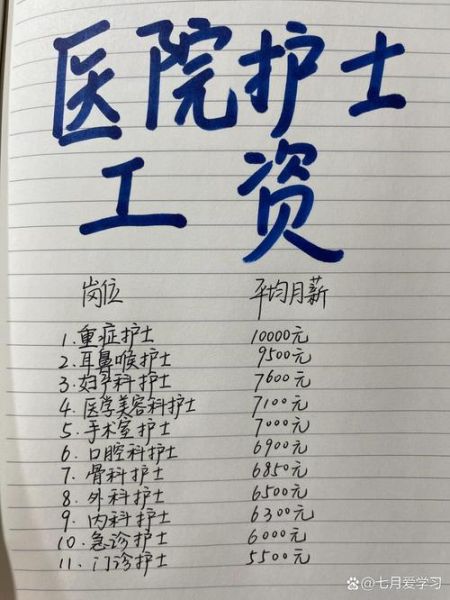 医院护士
工资
岗位 平均月薪
1.重症护士 10000元
2.耳鼻喉护士 9500元
3.妇产科护士 7600元
4.医学美容科护士 7100元
5.手术室护士 7000元
6.口腔科护士 6900元
7.骨科护士 6850元
8.外科护士 6500元
9.内科护士 6300元
10.急诊护士 6000元
11.门诊护士 5500元
@七月爱学习